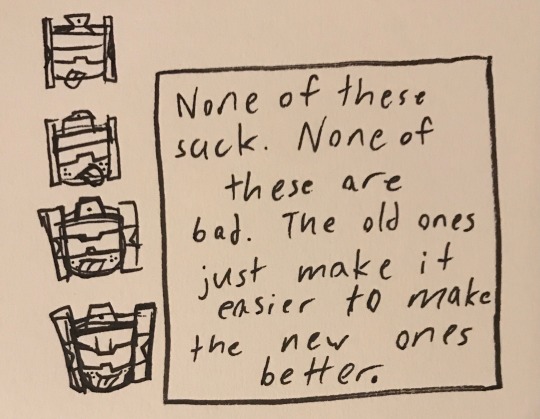 None of these
suck. None of
these are
bad. The old ones
just make it
easier to make
the new ones
better.